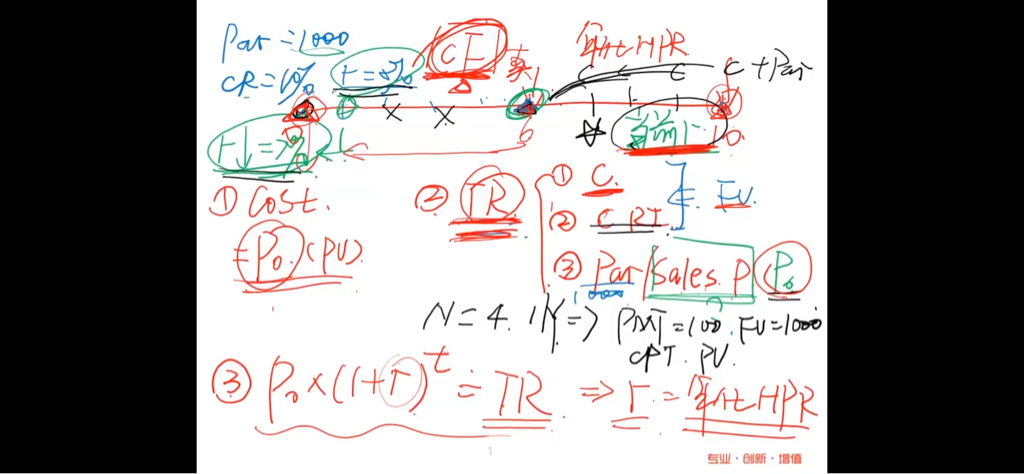 Par = 1000
CR = 10%
r = 8%
CF
卖
年化HPR
C C C C + Par
r↓ = 7%
0 1 6 10
① Cost.
= P₀ (PV)
② TR
① C.
② C RI
FV.
③ Par / Sales. P (P₆)
1000
N = 4. I/Y => PMT = 100. FV = 1000
CPT. PV.
③ P₀ × (1+r)^t = TR => r = 年化HPR
1
专业·创新·增值